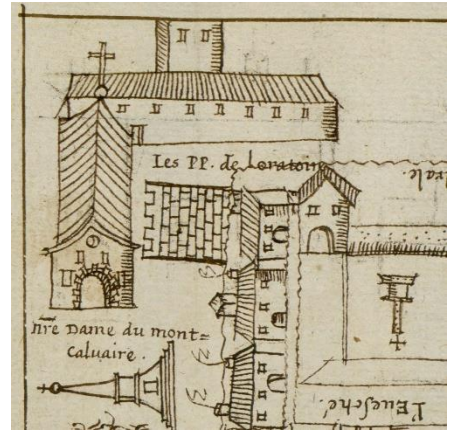 Les PP. de Loratoire
drale.
nr̃e Dame du mont=
Caluaire.
L'Euesché.